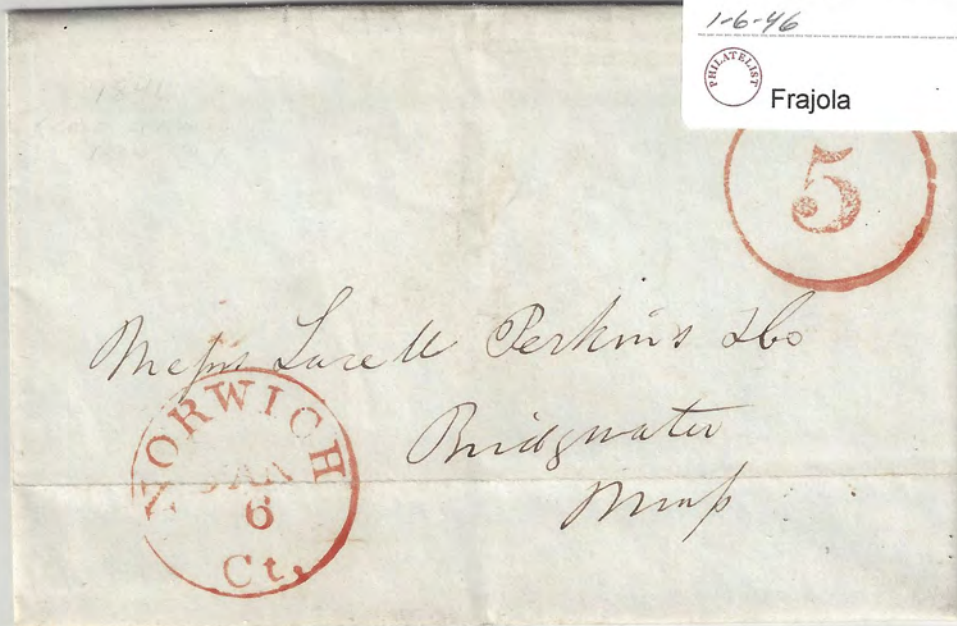 1-6-46
PHILATELIST
Frajola
5
Messrs Lazell Perkins & Co
Bridgwater
Mass
NORWICH
JAN
6
Ct.
1846